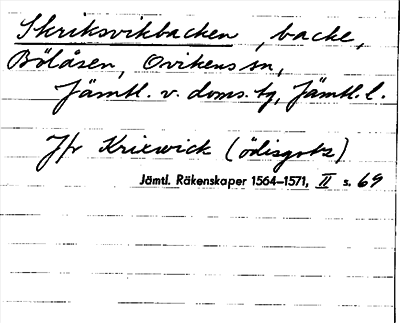 Skriksvikbacken, backe,
Bölåsen, Ovikens sn,
Jämtl. v. doms. tg, Jämtl. l.
Jfr Krixwick (ödisgotz)
Jämtl. Räkenskaper 1564–1571, II s. 69